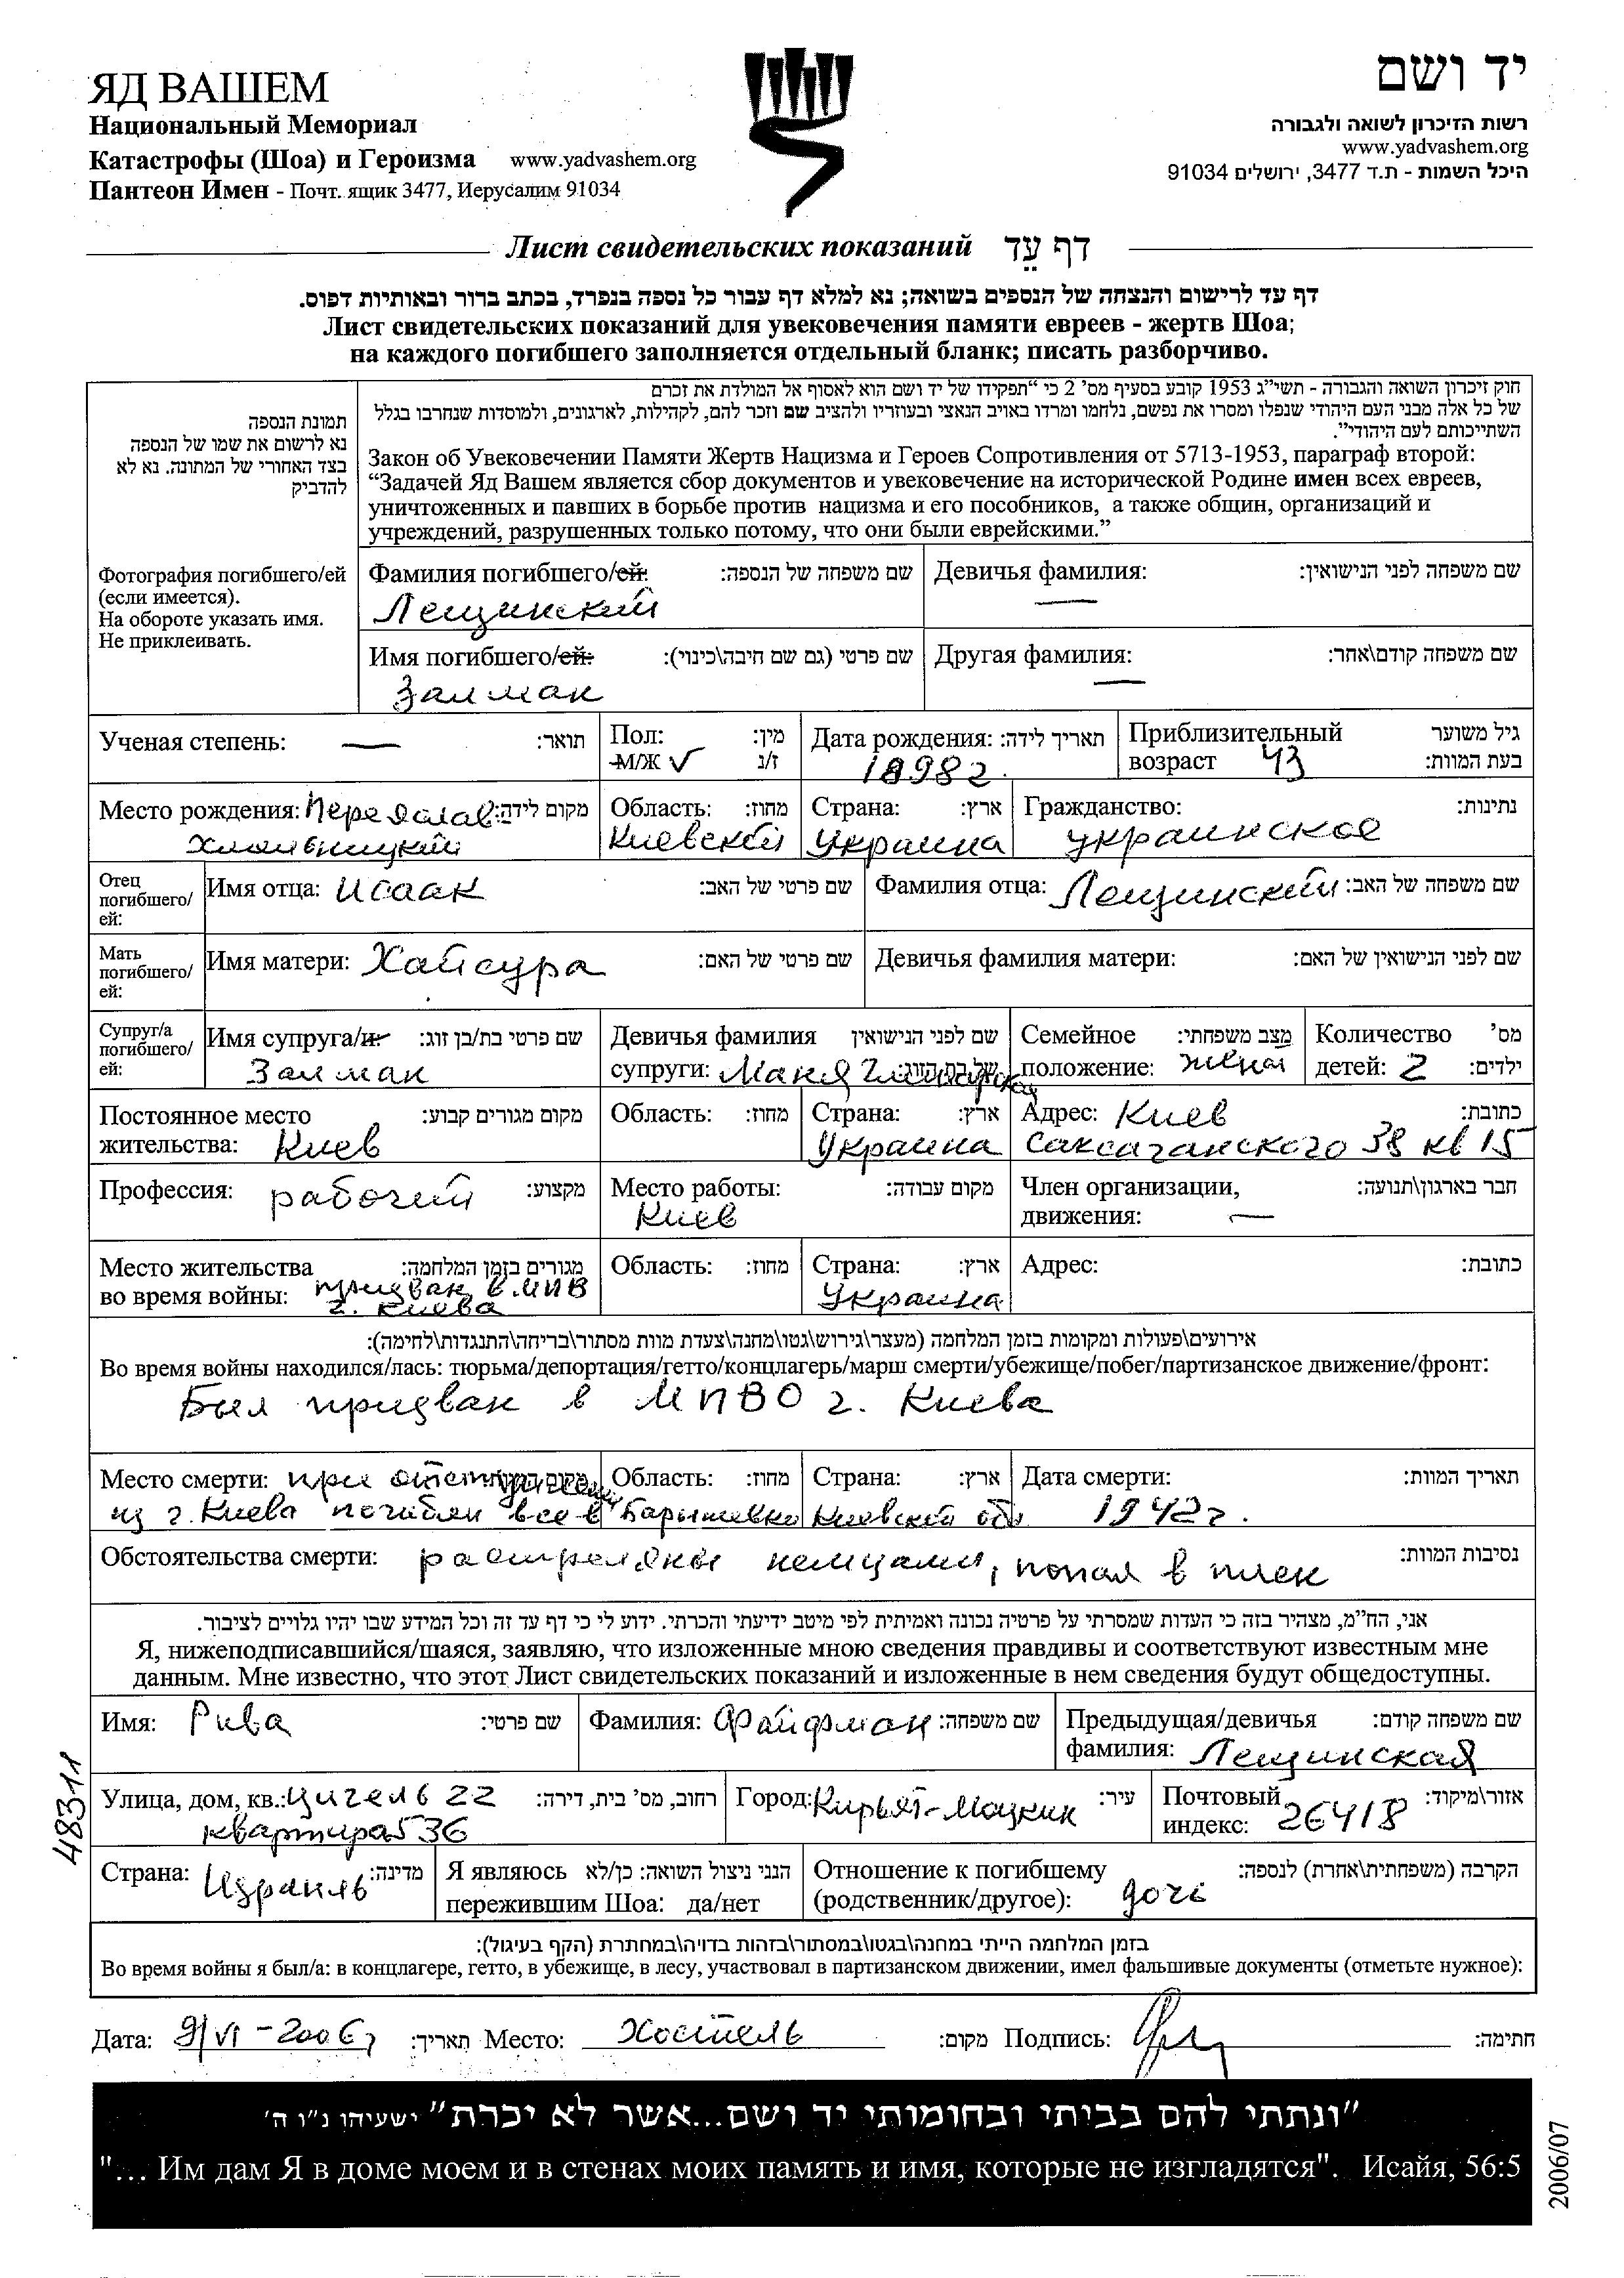 ЯД ВАШЕМ
Национальный Мемориал
Катастрофы (Шоа) и Героизма www.yadvashem.org
Пантеон Имен - Почт. ящик 3477, Иерусалим 91034
יד ושם
רשות הזיכרון לשואה ולגבורה
www.yadvashem.org
היכל השמות - ת.ד 3477, ירושלים 91034
Лист свидетельских показаний דף עֵד
דף עד לרישום והנצחה של הנספים בשואה; נא למלא דף עבור כל נספה בנפרד, בכתב ברור ובאותיות דפוס.
Лист свидетельских показаний для увековечения памяти евреев - жертв Шоа;
на каждого погибшего заполняется отдельный бланк; писать разборчиво.
תמונת הנספה
נא לרשום את שמו של הנספה
בצד האחורי של המתונה. נא לא
להדביק
Фотография погибшего/ей
(если имеется).
На обороте указать имя.
Не приклеивать.
חוק זיכרון השואה והגבורה - תשי"ג 1953 קובע בסעיף מס' 2 כי "תפקידו של יד ושם הוא לאסוף אל המולדת את זכרם
של כל אלה מבני העם היהודי שנפלו ומסרו את נפשם, נלחמו ומרדו באויב הנאצי ובעוזריו ולהציב שם וזכר להם, לקהילות, לארגונים, ולמוסדות שנחרבו בגלל
השתייכותם לעם היהודי".
Закон об Увековечении Памяти Жертв Нацизма и Героев Сопротивления от 5713-1953, параграф второй:
“Задачей Яд Вашем является сбор документов и увековечение на исторической Родине имен всех евреев,
уничтоженных и павших в борьбе против нацизма и его пособников, а также общин, организаций и
учреждений, разрушенных только потому, что они были еврейскими.”
Фамилия погибшего/ей: שם משפחה של הנספה: Девичья фамилия: שם משפחה לפני הנישואין:
Лещинский —
Имя погибшего/ей: שם פרטי (גם שם חיבה\כינוי): Другая фамилия: שם משפחה קודם\אחר:
Залман —
Ученая степень: — תואר: Пол: מין: Дата рождения: תאריך לידה: Приблизительный גיל משוער
М/Ж √ ז/נ 1898г. возраст 43 בעת המוות:
Место рождения: Переяслав- מקום לידה: Область: מחוז: Страна: ארץ: Гражданство: נתינות:
Хмельницкий Киевской Украина украинское
Отец погибшего/ей: Имя отца: Исаак שם פרטי של האב: Фамилия отца: Лещинский שם משפחה של האב:
Мать погибшего/ей: Имя матери: Хайсура שם פרטי של האם: Девичья фамилия матери: שם לפני הנישואין של האם:
Супруг/а погибшего/ей: Имя супруга/и: שם פרטי בת/בן זוג: Девичья фамилия שם לפני הנישואין Семейное מצב משפחתי: Количество מס'
Залман супруги: Маня של בת הזוג: положение: жена детей: 2 ילדים:
Постоянное место מקום מגורים קבוע: Область: מחוז: Страна: ארץ: Адрес: Киев כתובת:
жительства: Киев Украина Саксаганского 38 кв 15
Профессия: рабочий מקצוע: Место работы: מקום עבודה: Член организации, חבר בארגון\תנועה:
Киев движения: —
Место жительства מגורים בזמן המלחמה: Область: מחוז: Страна: ארץ: Адрес: כתובת:
во время войны: призван в Украина
г. Киева
אירועים\פעולות ומקומות בזמן המלחמה (מעצר\גירוש\גטו\מחנה\צעדת מוות מסתור\בריחה\התנגדות\לחימה):
Во время войны находился/лась: тюрьма/депортация/гетто/концлагерь/марш смерти/убежище/побег/партизанское движение/фронт:
Был призван в МПВО г. Киева
Место смерти: при отступлении מקום המוות: Область: מחוז: Страна: ארץ: Дата смерти: תאריך המוות:
из г. Киева погибли все в Барышевке Киевской обл 1942г.
Обстоятельства смерти: расстреляны немцами, попал в плен נסיבות המוות:
אני, הח"מ, מצהיר בזה כי העדות שמסרתי על פרטיה נכונה ואמיתית לפי מיטב ידיעתי והכרתי. ידוע לי כי דף עד זה וכל המידע שבו יהיו גלויים לציבור.
Я, нижеподписавшийся/шаяся, заявляю, что изложенные мною сведения правдивы и соответствуют известным мне
данным. Мне известно, что этот Лист свидетельских показаний и изложенные в нем сведения будут общедоступны.
Имя: Рива שם פרטי: Фамилия: Файфман שם משפחה: Предыдущая/девичья שם משפחה קודם:
фамилия: Лещинская
Улица, дом, кв.: Цигель 22 רחוב, מס' בית, דירה: Город: Кирьят-Моцкин עיר: Почтовый אזור\מיקוד:
квартира 536 индекс: 26418
Страна: Израиль מדינה: Я являюсь הנני ניצול השואה: כן/לא Отношение к погибшему הקרבה (משפחתית\אחרת) לנספה:
пережившим Шоа: да/нет (родственник/другое): дочь
בזמן המלחמה הייתי במחנה\בגטו\במסתור\בזהות בדויה\במחתרת (הקף בעיגול):
Во время войны я был/а: в концлагере, гетто, в убежище, в лесу, участвовал в партизанском движении, имел фальшивые документы (отметьте нужное):
Дата: 9/VI-2006г תאריך: Место: Хостель מקום: Подпись: חתימה:
"ונתתי להם בביתי ובחומותי יד ושם...אשר לא יכרת" ישעיהו נ"ו ה'
"... Им дам Я в доме моем и в стенах моих память и имя, которые не изгладятся". Исайя, 56:5
48311
2006/07